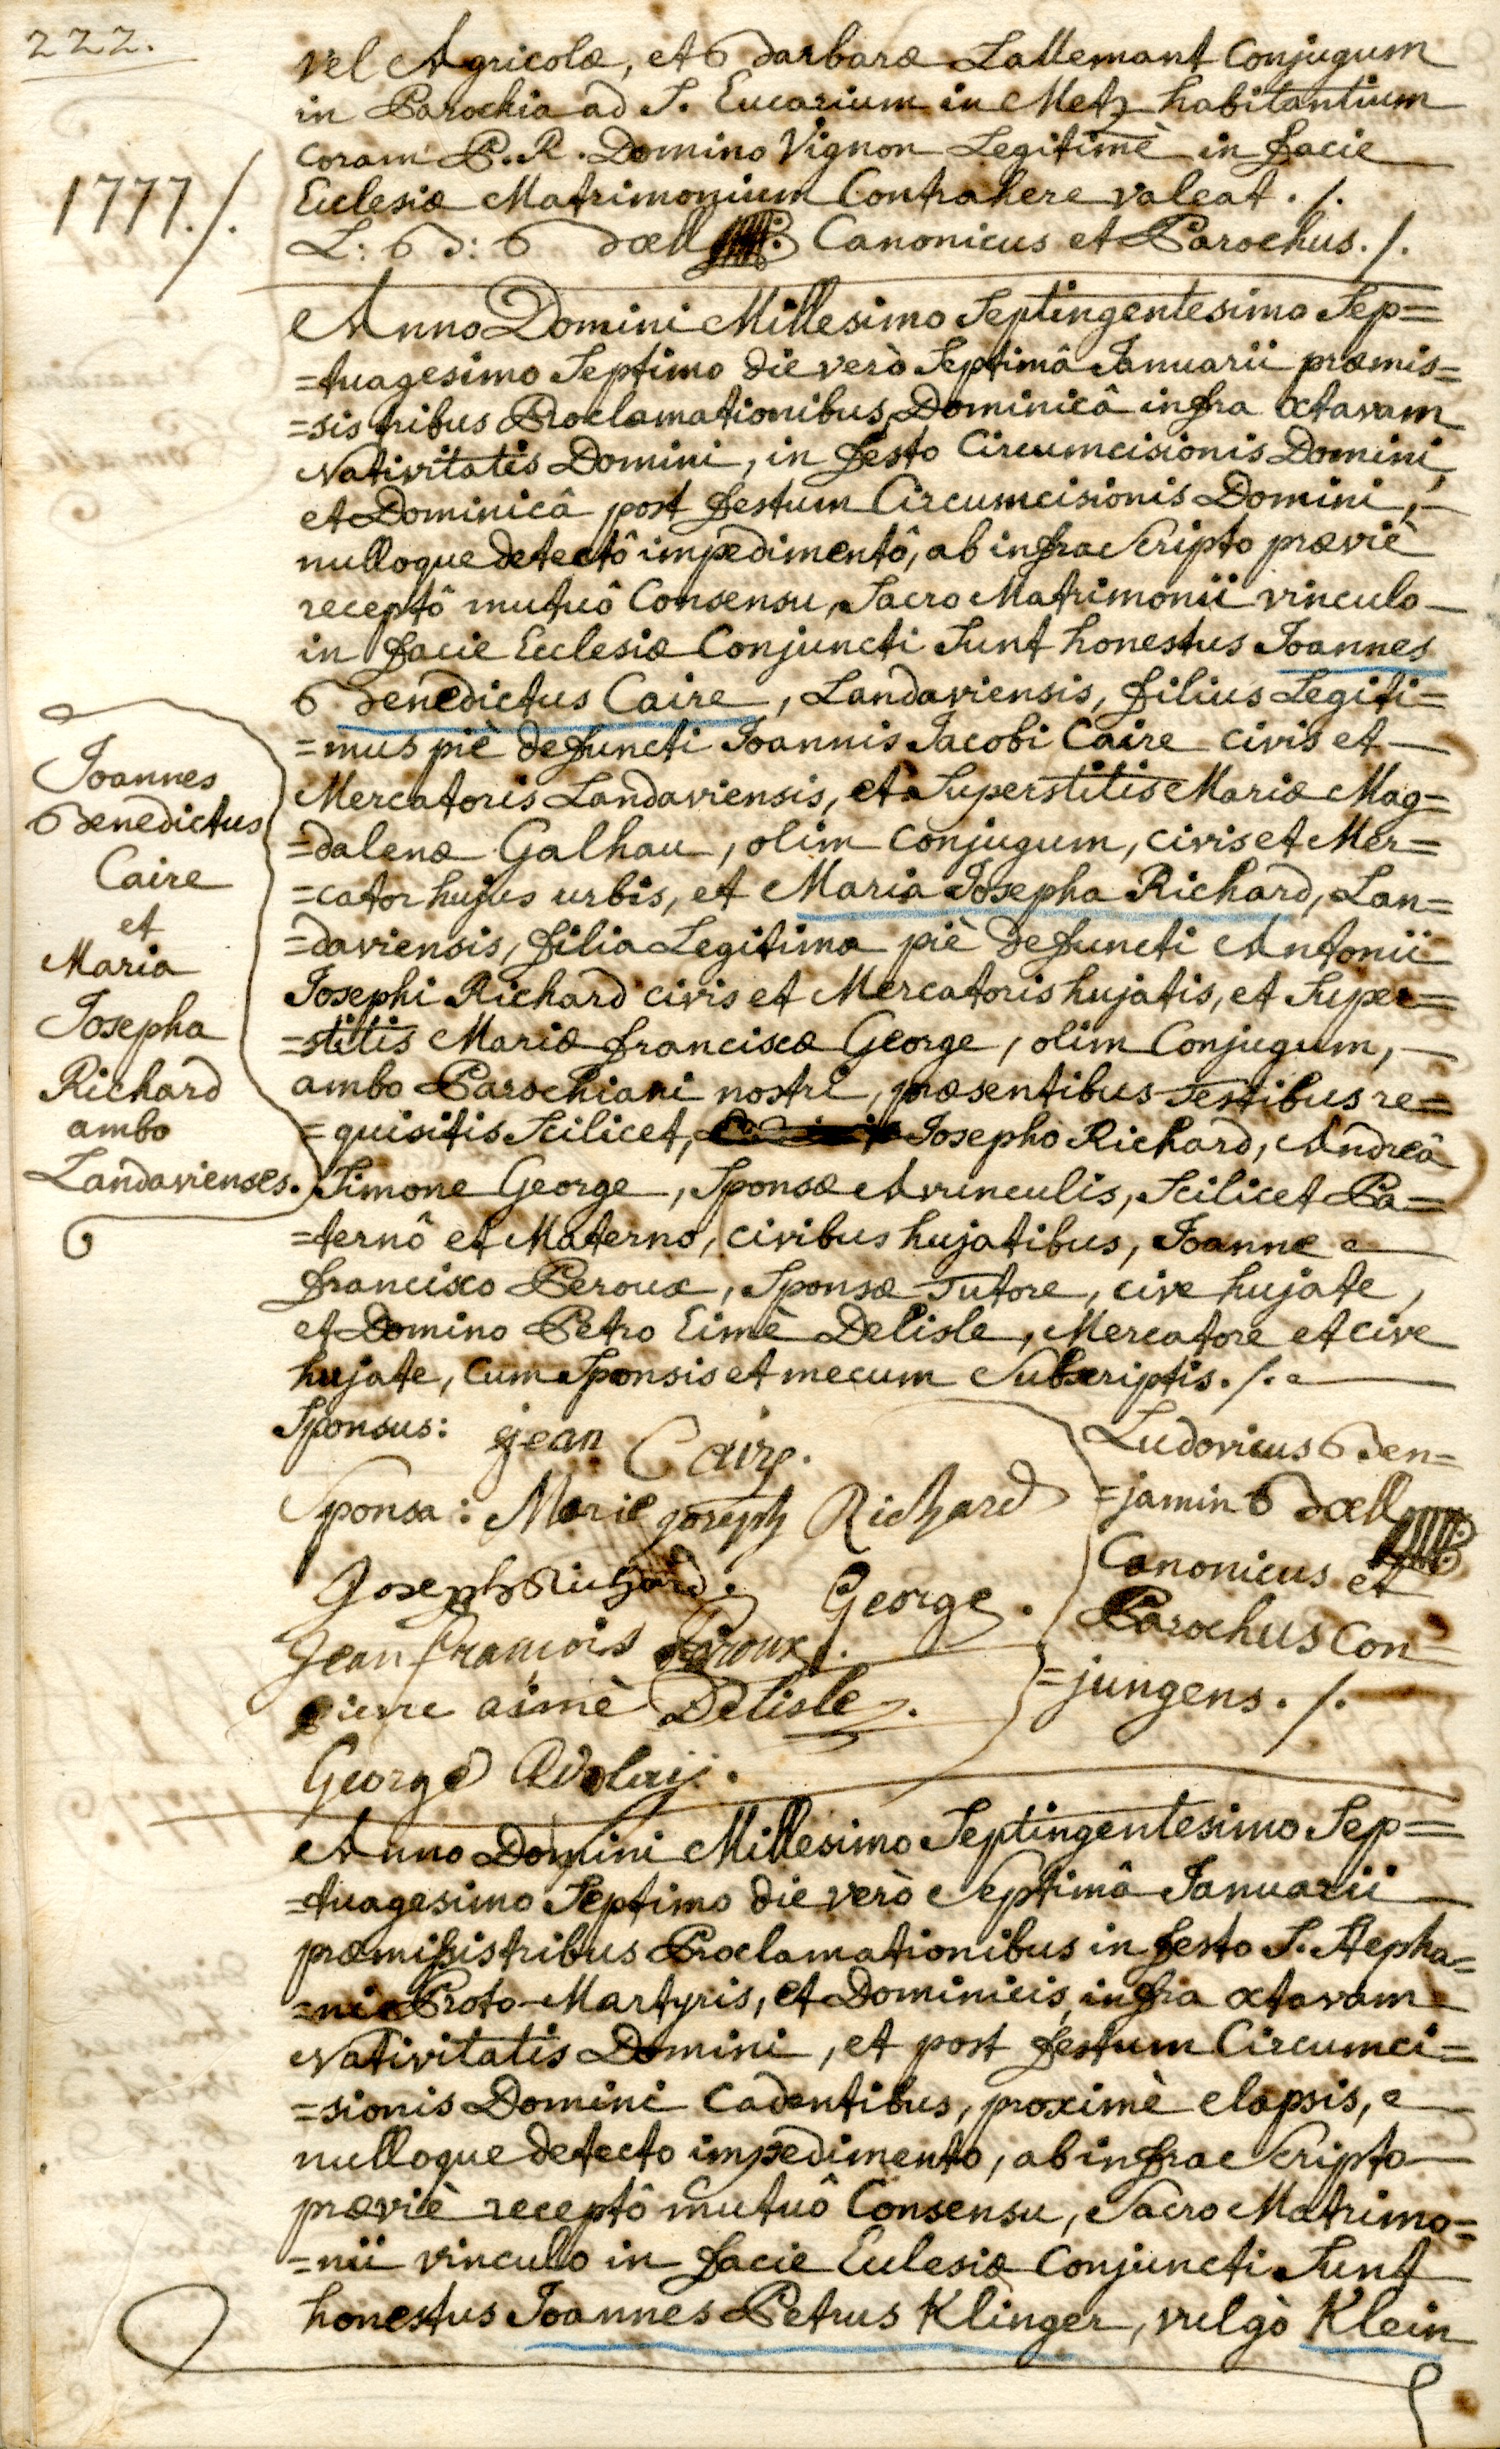 222.
vel Agricolæ, et Barbaræ Lallemant Conjugum
in Parochia ad S. Eucarium in Metz habitantium
coram P. R. Domino Vignon Legitimè in facie
Ecclesiæ Matrimonium Contrahere valeat. /.
L: B: Bœll Canonicus et Parochus. /.
1777. /.
Anno Domini Millesimo Septingentesimo Sep=
=tuagesimo Septimo die verò Septimâ Januarii præmis=
=sis tribus Proclamationibus Dominicâ infra octavam
Nativitatis Domini, in festo Circumcisionis Domini,
et Dominicâ post festum Circumcisionis Domini,
nulloque detectô impedimentô, ab infra Scripto præviè
receptô mutuô Consensu, Sacro Matrimonii vinculo
in facie Ecclesiæ Conjuncti Sunt honestus Joannes
Benedictus Caire, Landaviensis, filius Legiti=
=mus piè defuncti Joannis Jacobi Caire civis et
Mercatoris Landaviensis, et Superstitis Mariæ Mag=
=dalenæ Galhau, olim conjugum, civis et Mer=
=cator hujus urbis, et Maria Josepha Richard, Lan=
=daviensis, filia Legitima piè defuncti Antonii
Josephi Richard civis et Mercatoris hujatis, et Super=
=stitis Mariæ franciscæ George, olim Conjugum,
ambo Parochiani nostri, præsentibus testibus re=
=quisitis Scilicet, Josepho Richard, Andreâ
Simone George, Sponsæ Avunculis, Scilicet Pa=
=ternô et Materno, civibus hujatibus, Joanne
francisco Peroux, Sponsæ Tutore, cive hujate,
et Domino Petro Eimè Delisle, Mercatore et cive
hujate, cum Sponsis et mecum Subscriptis. /.
Joannes
Benedictus
Caire
et
Maria
Josepha
Richard
ambo
Landavienses.
Sponsus: jean Caire.
Sponsa: Marie joseph Richard
Joseph Richard. George.
Jean françois Peroux.
pierre aimè Delisle.
George
Ludovicus Ben=
=jamin Bœll
Canonicus et
Parochus Con=
=jungens. /.
Anno Domini Millesimo Septingentesimo Sep=
=tuagesimo Septimo die verò Septimâ Januarii
præmissis tribus Proclamationibus in festo S. Stepha=
=ni Proto-Martyris, et Dominicis infra octavam
Nativitatis Domini, et post festum Circumci=
=sionis Domini Cadentibus, proximè elapsis,
nulloque detecto impedimento, ab infra Scripto
præviè receptô mutuô Consensu, Sacro Matrimo=
=nii vinculo in facie Ecclesiæ Conjuncti Sunt
honestus Joannes Petrus Klinger, vulgò Klein